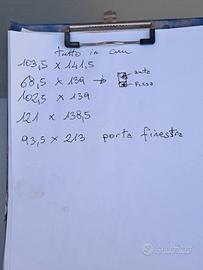 tutto in cm
103,5 x 141,5
68,5 x 139 → anta
Fissa
102,5 x 139
121 x 138,5
93,5 x 213 porta finestra
subito